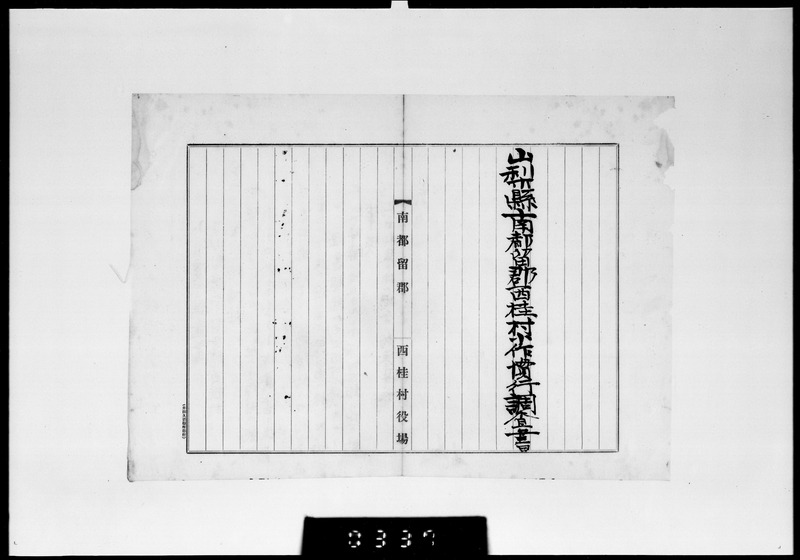 山梨縣南都留郡西桂村小作慣行調査書
南都留郡 西桂村役場
0337